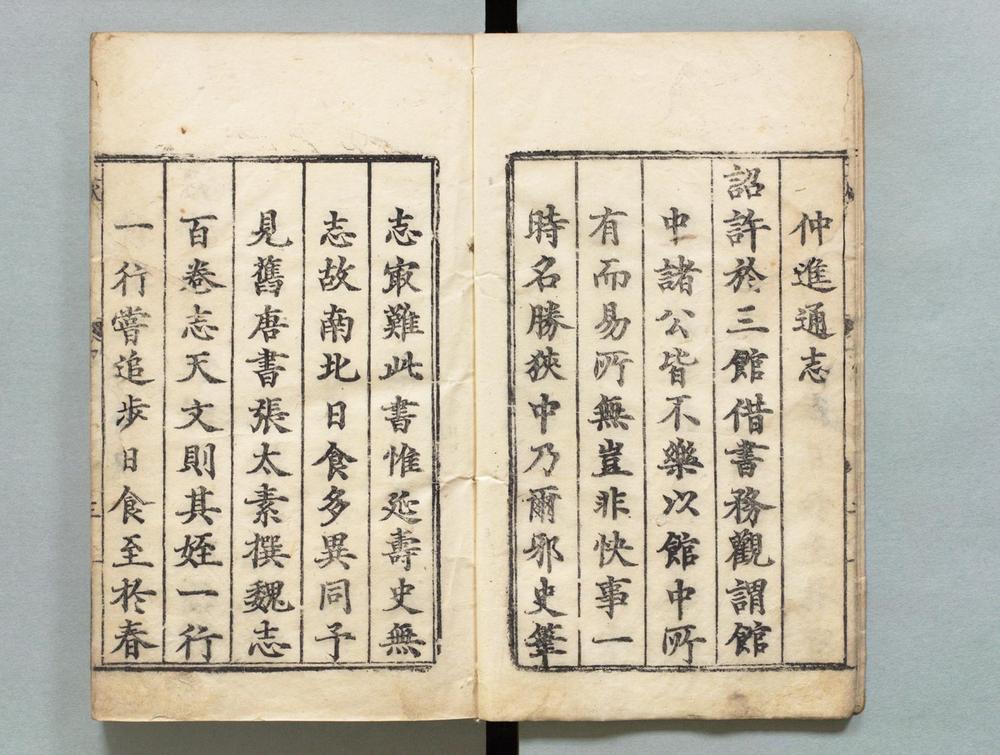 仲進通志
詔許於三館借書務觀謂館
中諸公皆不樂以館中所
有而易所無豈非快事一
時名勝狹中乃爾邪史筆
志㝡難此書惟延壽史無
志故南北日食多異同予
見舊唐書張太素撰魏志
百卷志天文則其姪一行
一行嘗追步日食至於春